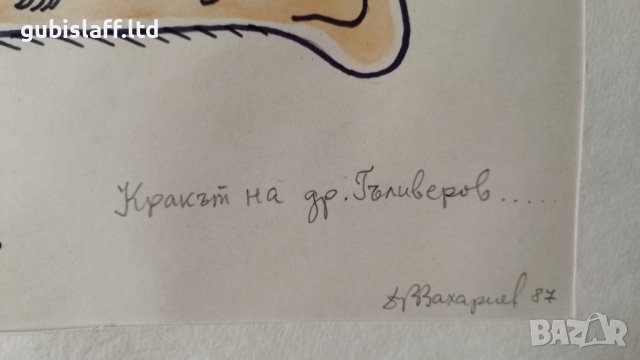 gubislaff.ltd
Кракът на др. Гъливеров......
Захариев 87
BAZAR